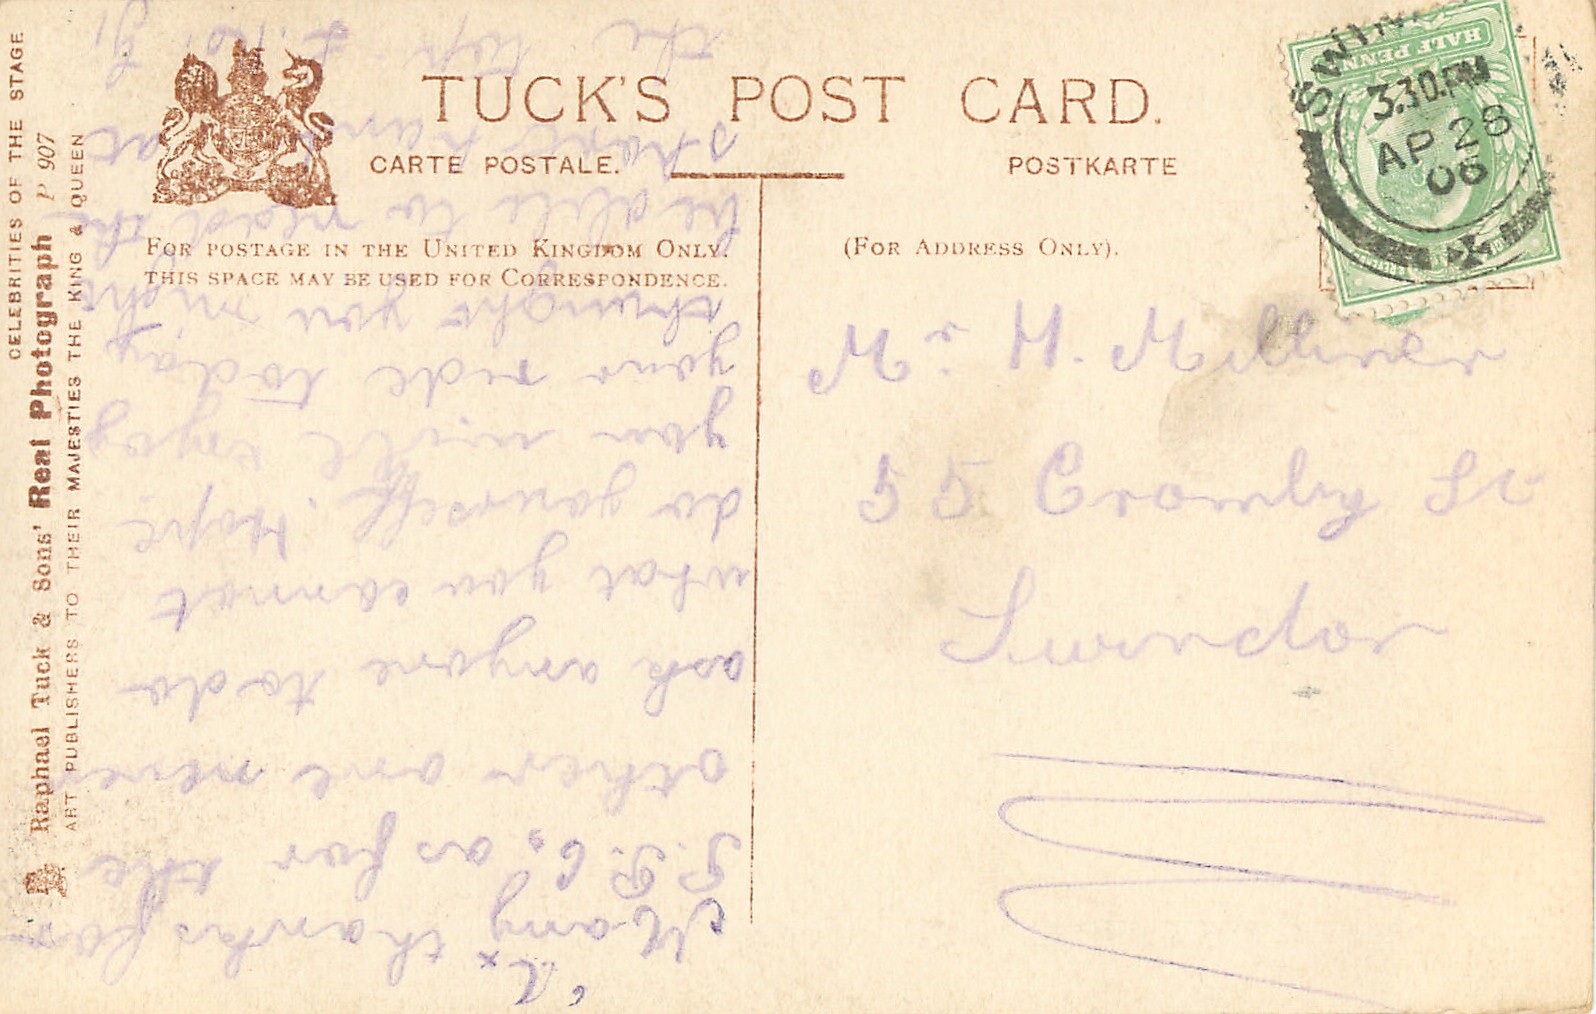 TUCK'S POST CARD.
CARTE POSTALE.
POSTKARTE
FOR POSTAGE IN THE UNITED KINGDOM ONLY.
THIS SPACE MAY BE USED FOR CORRESPONDENCE.
(FOR ADDRESS ONLY).
CELEBRITIES OF THE STAGE
Raphael Tuck & Sons' Real Photograph P 907
ART PUBLISHERS TO THEIR MAJESTIES THE KING & QUEEN
HALF PENNY
3.30.PM
AP 28
06
Mr H.
55 Cromby St
Swindon
Many thanks for
P.P.C, as for the
other one never
ask anyone to do
what you cannot
do yourself. Hope
you will enjoy
your ride today
thought you might
be able to read the
short hand at
the top